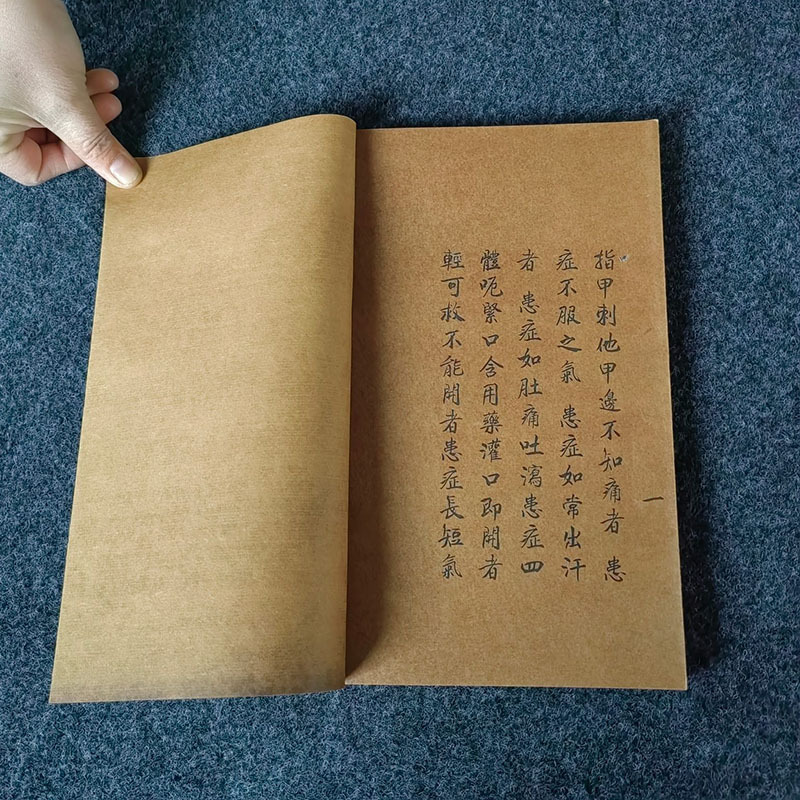 指甲刺他甲邊不知痛者 患
症不服之氣 患症如常出汗
者 患症如肚痛吐瀉患症四
體呃緊口含用藥灌口即開者
輕可救不能開者患症長短氣
一